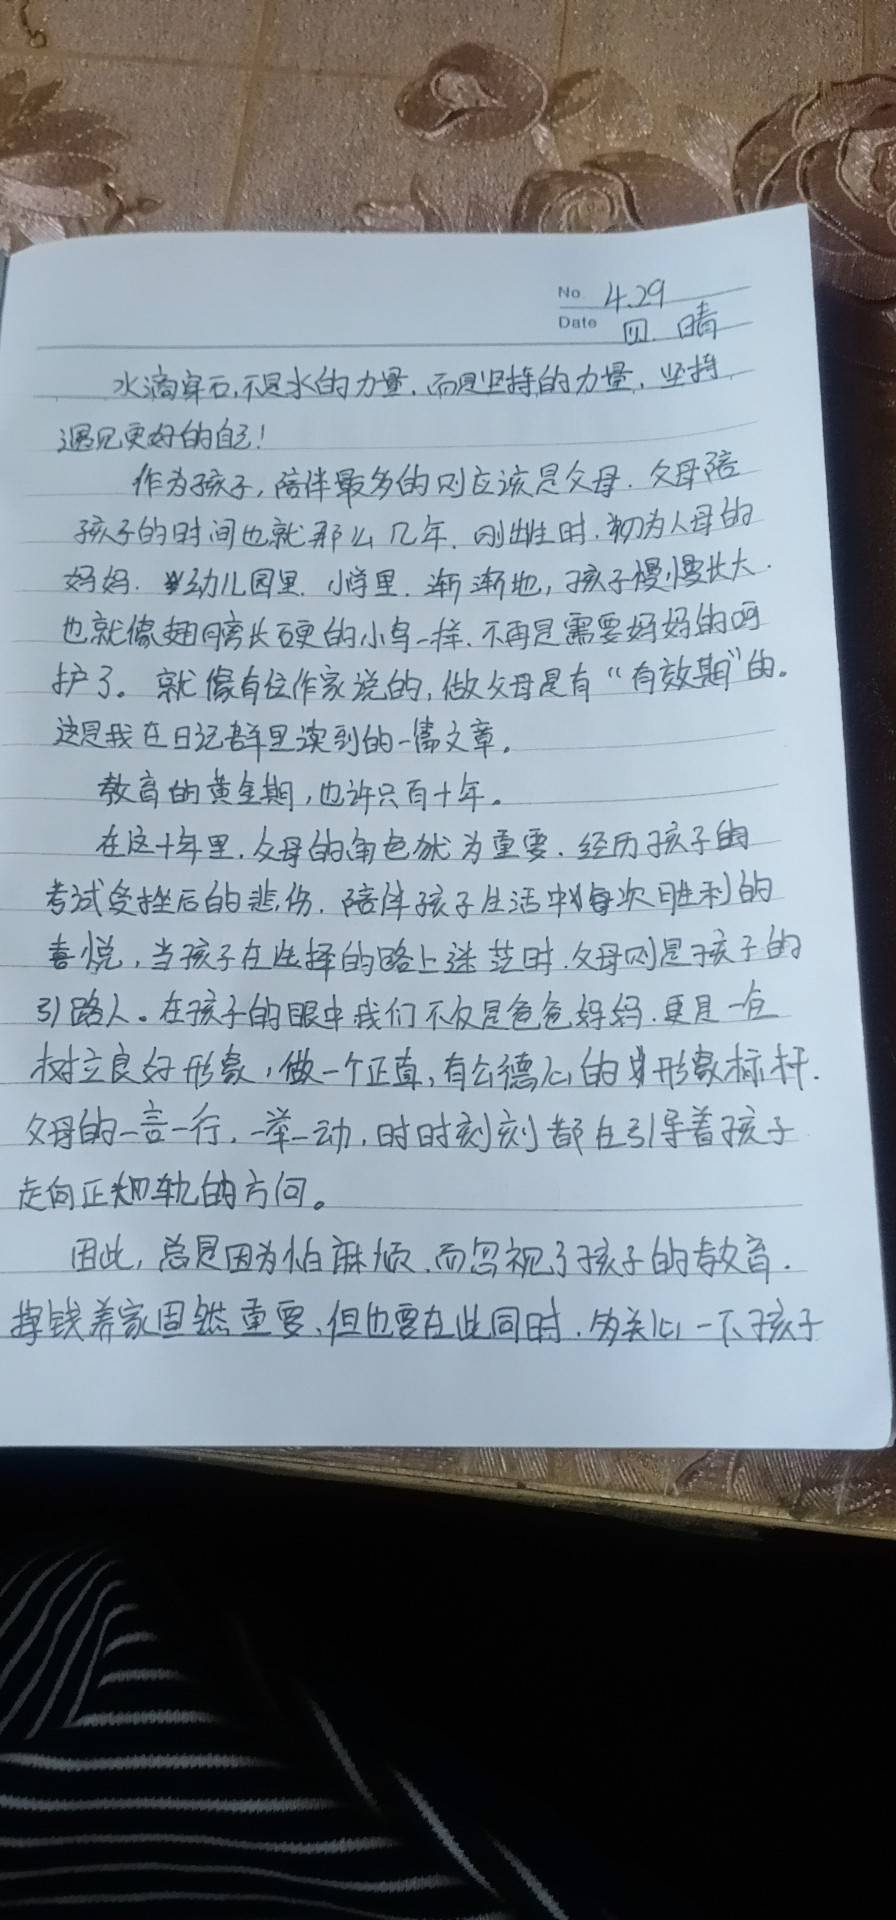 No 4.29
Date 四. 晴
水滴穿石,不是水的力量,而是坚持的力量,坚持
遇见更好的自己!
作为孩子,陪伴最多的则应该是父母.父母陪
孩子的时间也就那么几年,刚出生时,初为人母的
妈妈.幼儿园里.小学里.渐渐地,孩子慢慢长大.
也就像翅膀长硬的小鸟一样.不再是需要妈妈的呵
护了。就像有位作家说的,做父母是有“有效期”的。
这是我在日记群里读到的一篇文章。
教育的黄金期,也许只有十年。
在这十年里.父母的角色犹为重要.经历孩子的
考试受挫后的悲伤.陪伴孩子生活中每次胜利的
喜悦,当孩子在选择的路上迷茫时.父母则是孩子的
引路人。在孩子的眼中我们不仅是爸爸妈妈.更是一位
树立良好形象,做一个正直,有公德心的形象标杆.
父母的一言一行,一举一动,时时刻刻都在引导着孩子
走向正轨的方向。
因此,总是因为怕麻烦.而忽视了孩子的教育.
挣钱养家固然重要,但也要在此同时.多关心一下孩子